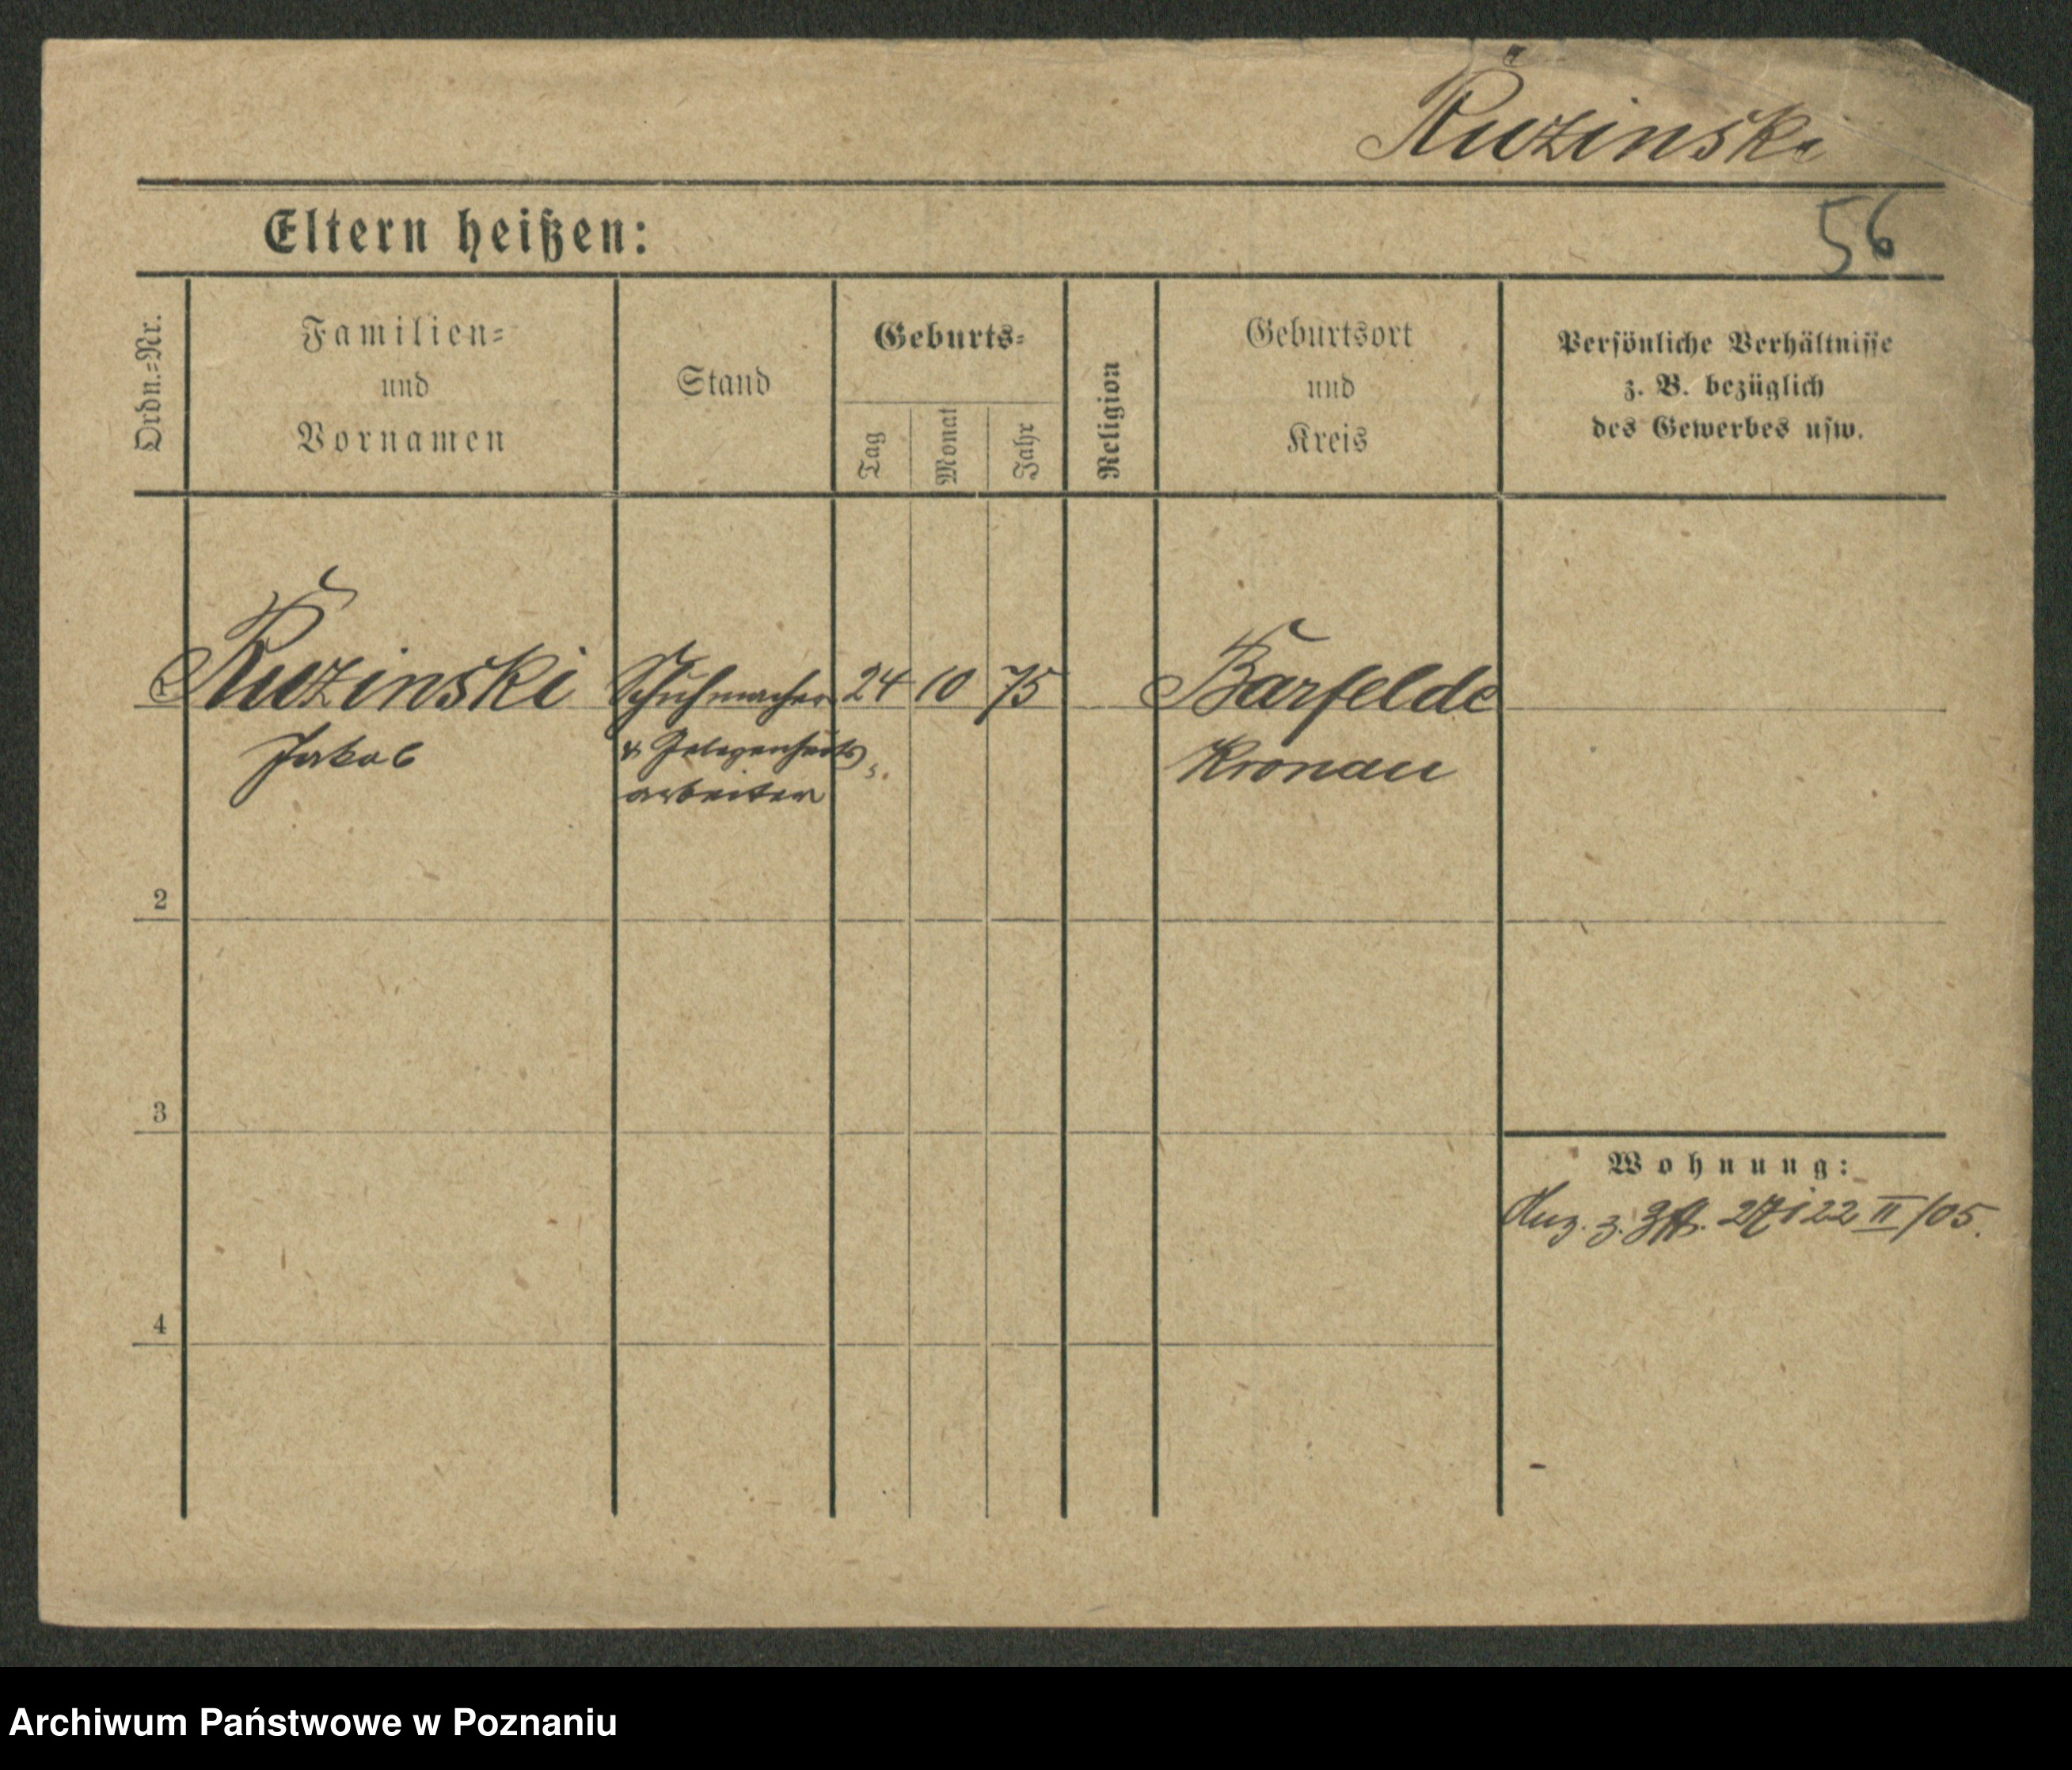 Ruzinski
Eltern heißen:
56
Ordn.-Nr.
Familien-
und
Vornamen
Stand
Geburts-
Tag
Monat
Jahr
Religion
Geburtsort
und
Kreis
Persönliche Verhältnisse
z. B. bezüglich
des Gewerbes usw.
1
Ruzinski
Jakob
Schuhmacher
& Gelegenheits
arbeiter
24
10
75
Barfelde
Kronau
2
3
4
Wohnung:
z. 22 II/05.
Archiwum Państwowe w Poznaniu